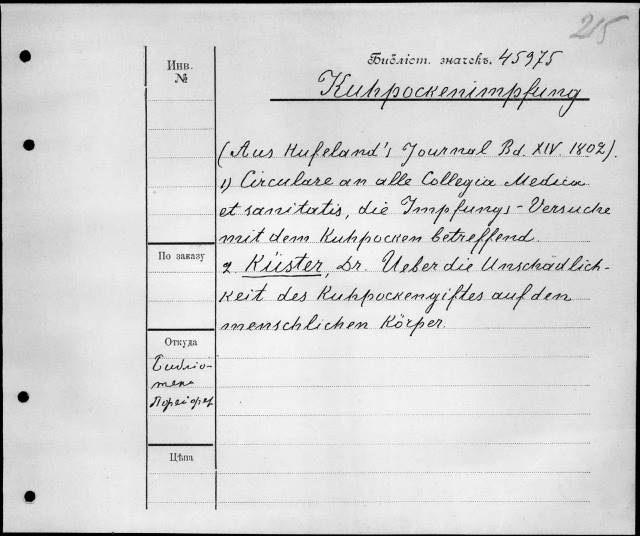 215
Библіот. значекъ. 45975
Инв.
№
Kuhpockenimpfung
(Aus Hufeland's Journal Bd. XIV. 1802).
1) Circulare an alle Collegia Medica
et sanitatis, die Impfungs-Versuche
mit dem Kuhpocken betreffend.
По заказу
2. Küster, Dr. Ueber die Unschädlich-
keit des Kuhpockengiftes auf den
menschlichen Körper.
Откуда
Библіо-
тека
Цѣна